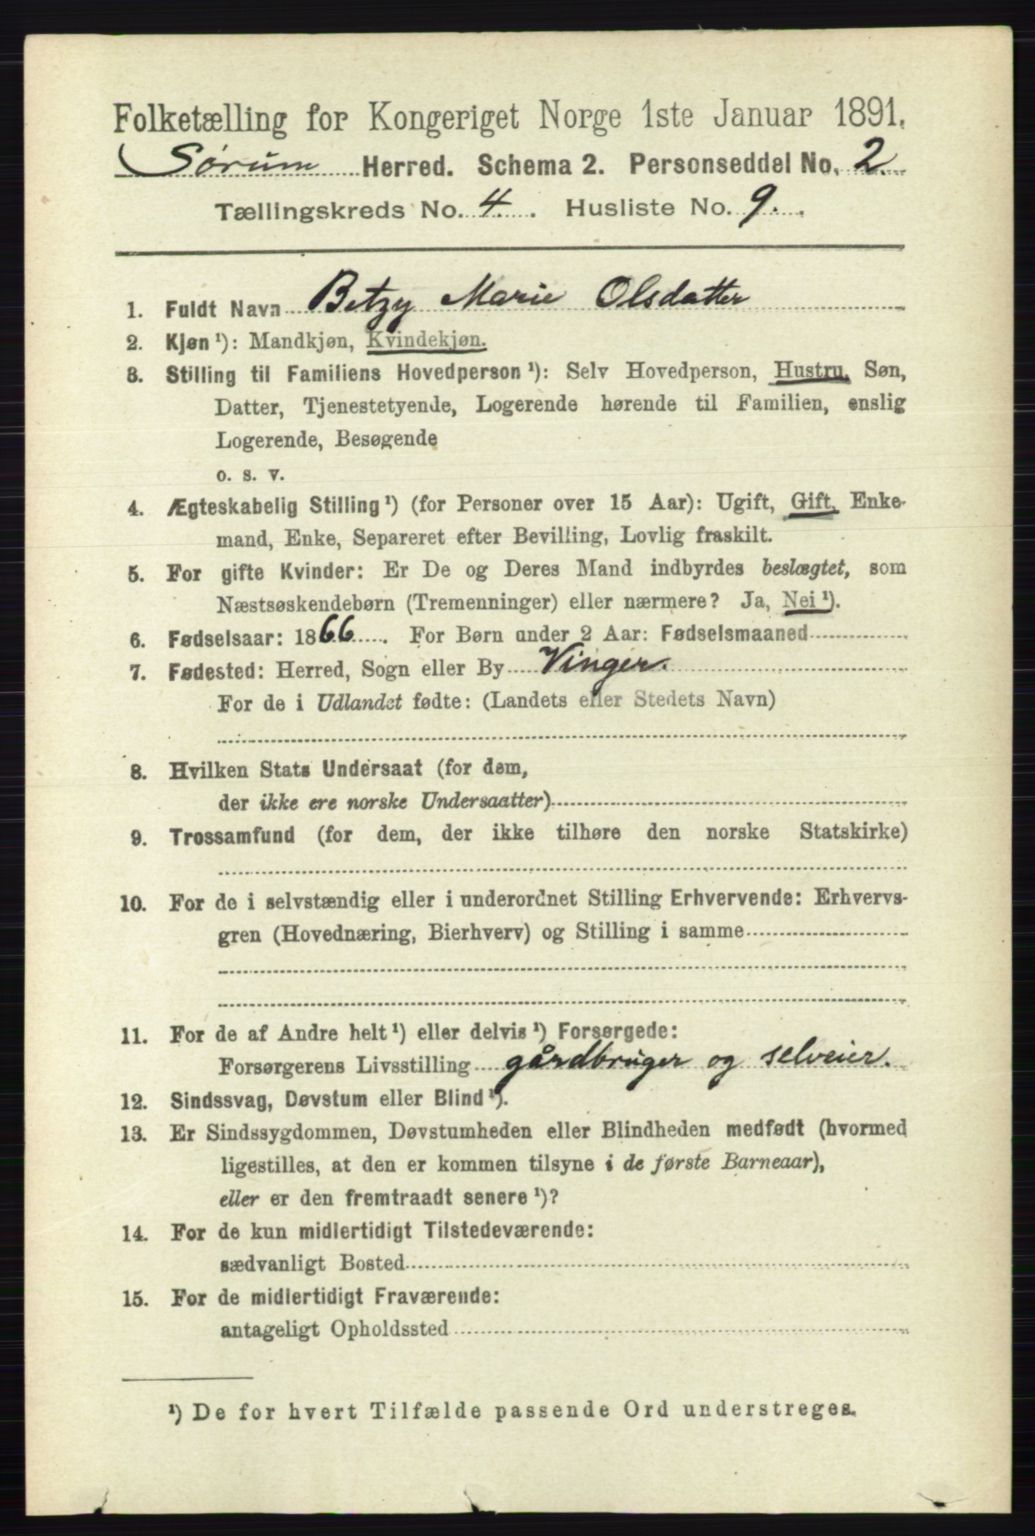 Folketælling for Kongeriget Norge 1ste Januar 1891.
Sørum Herred. Schema 2. Personseddel No. 2.
Tællingskreds No. 4. Husliste No. 9.
1. Fuldt Navn Betzy Marie Olsdatter
2. Kjøn ¹): Mandkjøn, Kvindekjøn.
3. Stilling til Familiens Hovedperson ¹): Selv Hovedperson, Hustru, Søn,
Datter, Tjenestetyende, Logerende hørende til Familien, enslig
Logerende, Besøgende
o. s. v.
4. Ægteskabelig Stilling ¹) (for Personer over 15 Aar): Ugift, Gift, Enke-
mand, Enke, Separeret efter Bevilling, Lovlig fraskilt.
5. For gifte Kvinder: Er De og Deres Mand indbyrdes beslægtet, som
Næstsøskendebørn (Tremenninger) eller nærmere? Ja, Nei ¹).
6. Fødselsaar: 1866. For Børn under 2 Aar: Fødselsmaaned
7. Fødested: Herred, Sogn eller By Vinger.
For de i Udlandet fødte: (Landets eller Stedets Navn)
8. Hvilken Stats Undersaat (for dem,
der ikke ere norske Undersaatter)
9. Trossamfund (for dem, der ikke tilhøre den norske Statskirke)
10. For de i selvstændig eller i underordnet Stilling Erhvervende: Erhvervs-
gren (Hovednæring, Bierhverv) og Stilling i samme
11. For de af Andre helt ¹) eller delvis ¹) Forsørgede:
Forsørgerens Livsstilling gårdbruger og selveier.
12. Sindssvag, Døvstum eller Blind ¹).
13. Er Sindssygdommen, Døvstumheden eller Blindheden medfødt (hvormed
ligestilles, at den er kommen tilsyne i de første Barneaar),
eller er den fremtraadt senere ¹)?
14. For de kun midlertidigt Tilstedeværende:
sædvanligt Bosted
15. For de midlertidigt Fraværende:
antageligt Opholdssted
¹) De for hvert Tilfælde passende Ord understreges.